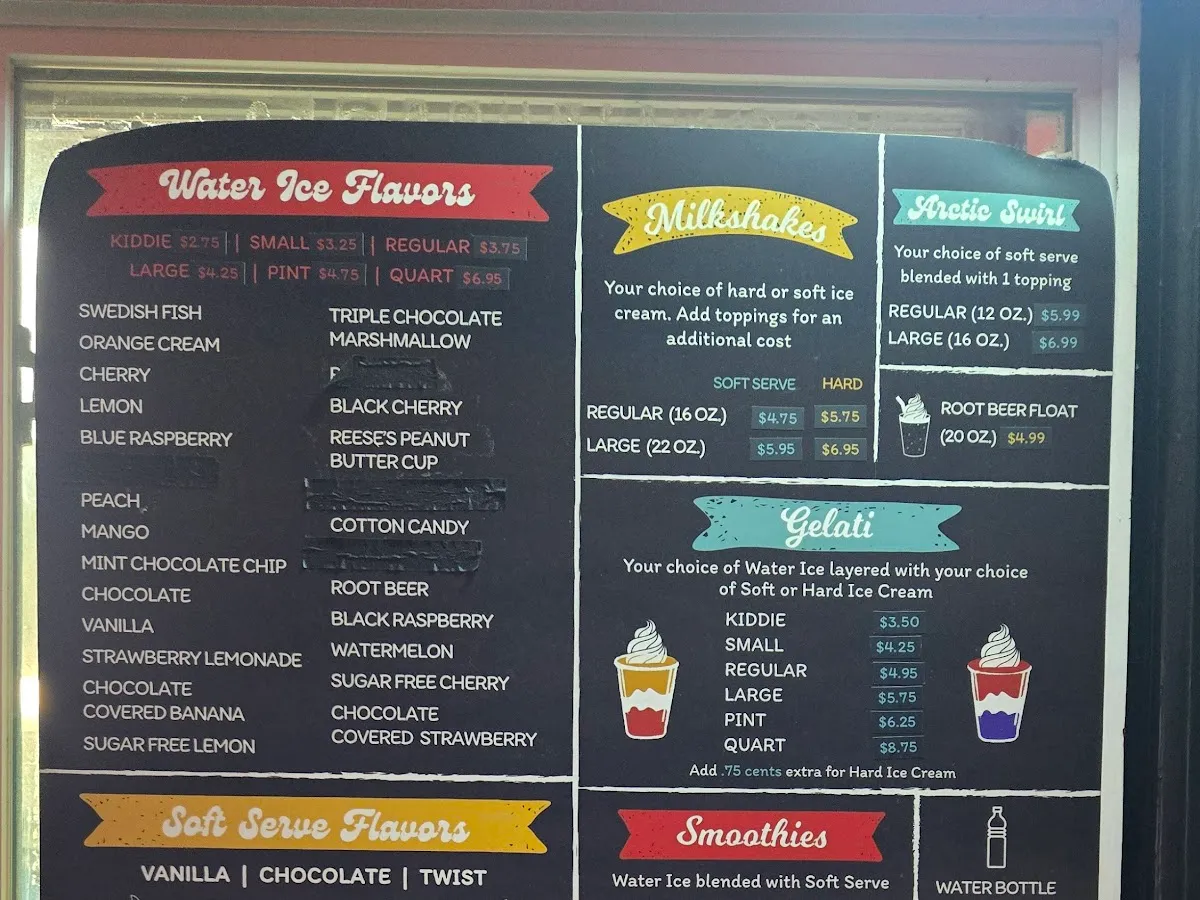 Water Ice Flavors
KIDDIE $2.75 | SMALL $3.25 | REGULAR $3.75
LARGE $4.25 | PINT $4.75 | QUART $6.95
SWEDISH FISH
ORANGE CREAM
CHERRY
LEMON
BLUE RASPBERRY
PEACH
MANGO
MINT CHOCOLATE CHIP
CHOCOLATE
VANILLA
STRAWBERRY LEMONADE
CHOCOLATE
COVERED BANANA
SUGAR FREE LEMON
TRIPLE CHOCOLATE
MARSHMALLOW
BLACK CHERRY
REESE'S PEANUT
BUTTER CUP
COTTON CANDY
ROOT BEER
BLACK RASPBERRY
WATERMELON
SUGAR FREE CHERRY
CHOCOLATE
COVERED STRAWBERRY
Soft Serve Flavors
VANILLA | CHOCOLATE | TWIST
Milkshakes
Your choice of hard or soft ice
cream. Add toppings for an
additional cost
SOFT SERVE HARD
REGULAR (16 OZ.) $4.75 $5.75
LARGE (22 OZ.) $5.95 $6.95
Arctic Swirl
Your choice of soft serve
blended with 1 topping
REGULAR (12 OZ.) $5.99
LARGE (16 OZ.) $6.99
ROOT BEER FLOAT
(20 OZ.) $4.99
Gelati
Your choice of Water Ice layered with your choice
of Soft or Hard Ice Cream
KIDDIE $3.50
SMALL $4.25
REGULAR $4.95
LARGE $5.75
PINT $6.25
QUART $8.75
Add .75 cents extra for Hard Ice Cream
Smoothies
Water Ice blended with Soft Serve
WATER BOTTLE